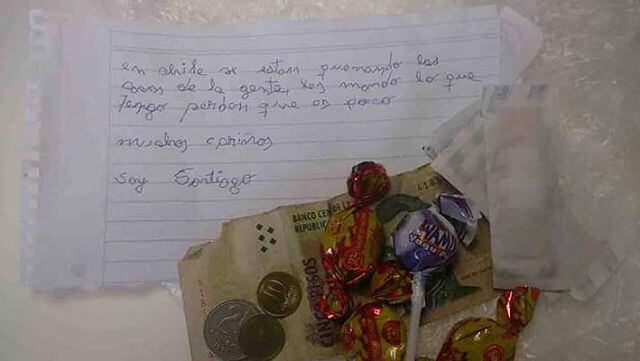 en chile se estan quemando las
casas de la gente, les mando lo que
tengo perdon que es poco
muchos cariños
soy Santiago
BANCO CE DE LA
REPUBLIC
CINCO PESOS